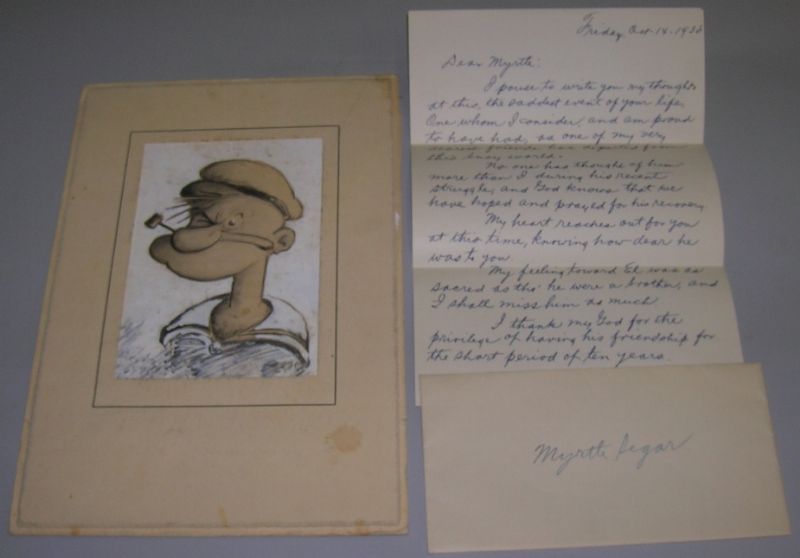 Friday, Oct-14-1938
Dear Myrtle:
I pause to write you my thoughts
at this, the saddest event of your life.
One whom I consider, and am proud
to have had, as one of my very
dearest friends has departed from
this busy world.
No one has thought of him
more than I during his recent
struggle, and God knows that we
have hoped and prayed for his recovery.
My heart reaches out for you
at this time, knowing how dear he
was to you.
My feeling toward El was as
sacred as tho' he were a brother, and
I shall miss him as much.
I thank my God for the
privilege of having his friendship for
the short period of ten years.
Myrtle Segar